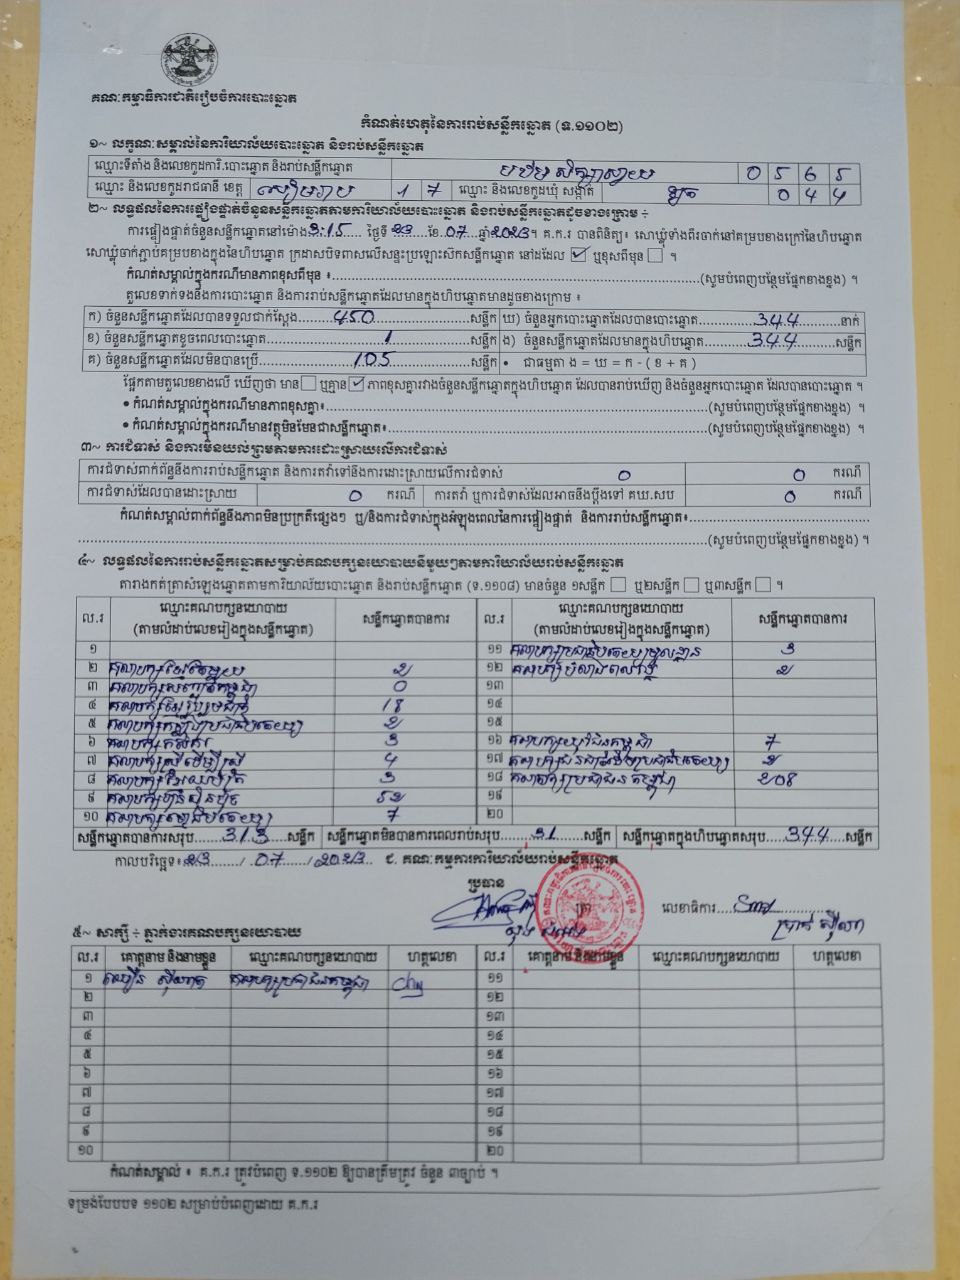 គណៈកម្មាធិការជាតិរៀបចំការបោះឆ្នោត
កំណត់ហេតុនៃការរាប់សន្លឹកឆ្នោត (ទ.១១០២)
១~ លក្ខណៈសម្គាល់នៃការិយាល័យបោះឆ្នោត និងរាប់សន្លឹកឆ្នោត
ឈ្មោះទីតាំង និងលេខកូដការិ.បោះឆ្នោត និងរាប់សន្លឹកឆ្នោត 0 5 6 5
ឈ្មោះ និងលេខកូដរាជធានី ខេត្ត សៀមរាប 1 7 ឈ្មោះ និងលេខកូដឃុំ សង្កាត់ 0 4 4
២~ លទ្ធផលនៃការផ្ទៀងផ្ទាត់ចំនួនសន្លឹកឆ្នោតតាមការិយាល័យបោះឆ្នោត និងរាប់សន្លឹកឆ្នោតដូចខាងក្រោម ÷
ការផ្ទៀងផ្ទាត់ចំនួនសន្លឹកឆ្នោតនៅម៉ោង 3:15 ថ្ងៃទី 23 ខែ 07 ឆ្នាំ 2023 ។ គ.ក.រ បានពិនិត្យ៖ សោឃ្លុំទាំងពីរចាក់នៅគម្របខាងក្រៅនៃហិបឆ្នោត
សោឃ្លុំចាក់ភ្ជាប់គម្របខាងក្នុងនៃហិបឆ្នោត ក្រដាសបិទពាសលើសន្ទះប្រឡោះស៊កសន្លឹកឆ្នោត នៅដដែល ☑ ឬខុសពីមុន ☐ ។
កំណត់សម្គាល់ក្នុងករណីមានភាពខុសពីមុន ៖ (សូមបំពេញបន្ថែមផ្នែកខាងខ្នង) ។
តួលេខទាក់ទងនឹងការបោះឆ្នោត និងការរាប់សន្លឹកឆ្នោតដែលមានក្នុងហិបឆ្នោតមានដូចខាងក្រោម ៖
ក) ចំនួនសន្លឹកឆ្នោតដែលបានទទួលជាក់ស្តែង 450 សន្លឹក ឃ) ចំនួនអ្នកបោះឆ្នោតដែលបានបោះឆ្នោត 344 នាក់
ខ) ចំនួនសន្លឹកឆ្នោតខូចពេលបោះឆ្នោត 1 សន្លឹក ង) ចំនួនសន្លឹកឆ្នោតដែលមានក្នុងហិបឆ្នោត 344 សន្លឹក
គ) ចំនួនសន្លឹកឆ្នោតដែលមិនបានប្រើ 105 សន្លឹក • ជាធម្មតា ង = ឃ = ក - ( ខ + គ )
ផ្អែកតាមតួលេខខាងលើ ឃើញថា មាន ☐ ឬគ្មាន ☑ ភាពខុសគ្នារវាងចំនួនសន្លឹកឆ្នោតក្នុងហិបឆ្នោត ដែលបានរាប់ឃើញ និងចំនួនអ្នកបោះឆ្នោត ដែលបានបោះឆ្នោត ។
• កំណត់សម្គាល់ក្នុងករណីមានភាពខុសគ្នា៖ (សូមបំពេញបន្ថែមផ្នែកខាងខ្នង) ។
• កំណត់សម្គាល់ក្នុងករណីមានវត្ថុមិនមែនជាសន្លឹកឆ្នោត៖ (សូមបំពេញបន្ថែមផ្នែកខាងខ្នង) ។
៣~ ការជំទាស់ និងការមិនយល់ព្រមតាមការដោះស្រាយលើការជំទាស់
ការជំទាស់ពាក់ព័ន្ធនឹងការរាប់សន្លឹកឆ្នោត និងការតវ៉ាទៅនឹងការដោះស្រាយលើការជំទាស់ 0 0 ករណី
ការជំទាស់ដែលបានដោះស្រាយ 0 ករណី ការតវ៉ា ឬការជំទាស់ដែលអាចនឹងប្តឹងទៅ គឃ.សប 0 ករណី
កំណត់សម្គាល់ពាក់ព័ន្ធនឹងភាពមិនប្រក្រតីផ្សេងៗ ឬ/និងការជំទាស់ក្នុងអំឡុងពេលនៃការផ្ទៀងផ្ទាត់ និងការរាប់សន្លឹកឆ្នោត៖
(សូមបំពេញបន្ថែមផ្នែកខាងខ្នង) ។
៤~ លទ្ធផលនៃការរាប់សន្លឹកឆ្នោតសម្រាប់គណបក្សនយោបាយនីមួយៗតាមការិយាល័យរាប់សន្លឹកឆ្នោត
តារាងកត់ត្រាសំឡេងឆ្នោតតាមការិយាល័យបោះឆ្នោត និងរាប់សន្លឹកឆ្នោត (ទ.១១០៨) មានចំនួន ១សន្លឹក ☐ ឬ២សន្លឹក ☐ ឬ៣សន្លឹក ☐ ។
ល.រ ឈ្មោះគណបក្សនយោបាយ (តាមលំដាប់លេខរៀងក្នុងសន្លឹកឆ្នោត) សន្លឹកឆ្នោតបានការ ល.រ ឈ្មោះគណបក្សនយោបាយ (តាមលំដាប់លេខរៀងក្នុងសន្លឹកឆ្នោត) សន្លឹកឆ្នោតបានការ
១ ១១ គណបក្សប្រជាធិបតេយ្យមូលដ្ឋាន 3
២ គណបក្សខ្មែរតែមួយ 2 ១២ 2
៣ 0 ១៣
៤ 18 ១៤
៥ 2 ១៥
៦ គណបក្សកសិករ 3 ១៦ គណបក្សយុវជនកម្ពុជា 7
៧ គណបក្សស្ត្រីដើម្បីស្ត្រី 4 ១៧ 2
៨ 3 ១៨ គណបក្សប្រជាជនកម្ពុជា 208
៩ គណបក្សហ៊្វុនស៊ិនប៉ិច 52 ១៩
១០ 7 ២០
សន្លឹកឆ្នោតបានការសរុប 313 សន្លឹក សន្លឹកឆ្នោតមិនបានការពេលរាប់សរុប 31 សន្លឹក សន្លឹកឆ្នោតក្នុងហិបឆ្នោតសរុប 344 សន្លឹក
កាលបរិច្ឆេទ៖ 23 / 07 / 2023 ជ. គណៈកម្មការការិយាល័យរាប់សន្លឹកឆ្នោត
ប្រធាន
ត្រា លេខាធិការ
៥~ សាក្សី ÷ ភ្នាក់ងារគណបក្សនយោបាយ
ល.រ គោត្តនាម និងនាមខ្លួន ឈ្មោះគណបក្សនយោបាយ ហត្ថលេខា ល.រ គោត្តនាម និងនាមខ្លួន ឈ្មោះគណបក្សនយោបាយ ហត្ថលេខា
១ គណបក្សប្រជាជនកម្ពុជា ១១
២ ១២
៣ ១៣
៤ ១៤
៥ ១៥
៦ ១៦
៧ ១៧
៨ ១៨
៩ ១៩
១០ ២០
កំណត់សម្គាល់ ៖ គ.ក.រ ត្រូវបំពេញ ទ.១១០២ ឱ្យបានត្រឹមត្រូវ ចំនួន ៣ច្បាប់ ។
ទម្រង់បែបបទ ១១០២ សម្រាប់បំពេញដោយ គ.ក.រ